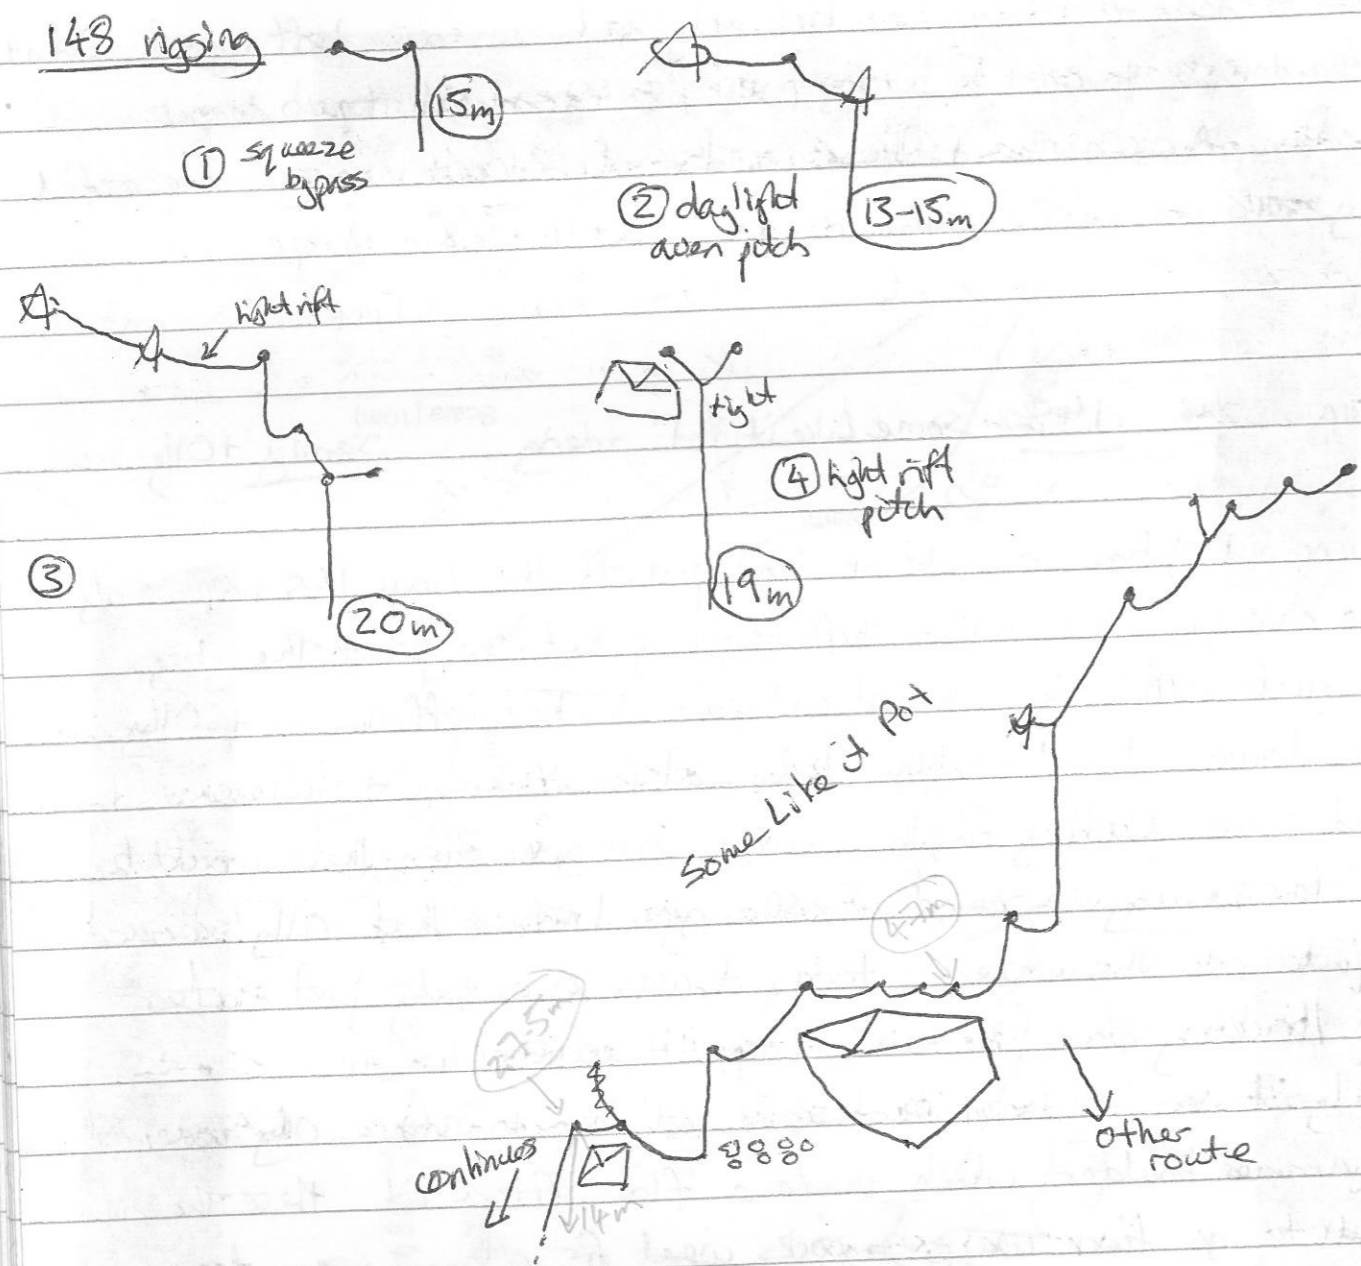 148 rigging
15m
① squeeze
bypass
② daylight
aven pitch
13-15m
tight rift
③
20m
tight
④ tight rift
pitch
19m
Some Like it Pot
47m
27.5m
continues
14m
other
route